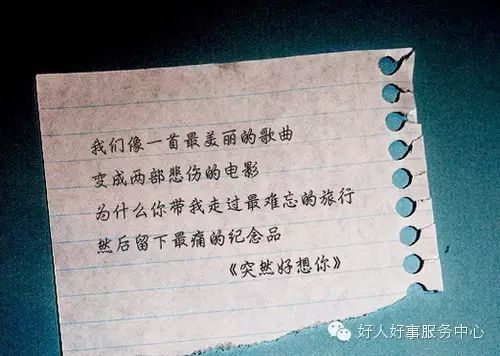 我们像一首最美丽的歌曲
变成两部悲伤的电影
为什么你带我走过最难忘的旅行
然后留下最痛的纪念品
《突然好想你》
好人好事服务中心